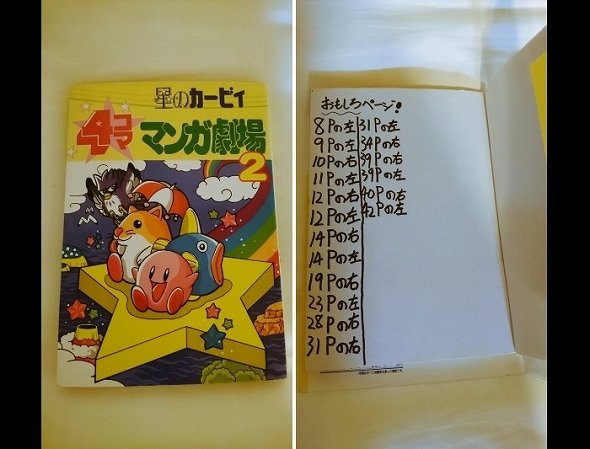 星のカービィ
4コママンガ劇場
2
おもしろページ!
8Pの左
9Pの左
10Pの右
11Pの左
12Pの右
12Pの左
14Pの右
14Pの左
19Pの右
23Pの左
28Pの右
31Pの右
31Pの左
34Pの右
39Pの右
39Pの左
40Pの右
42Pの左